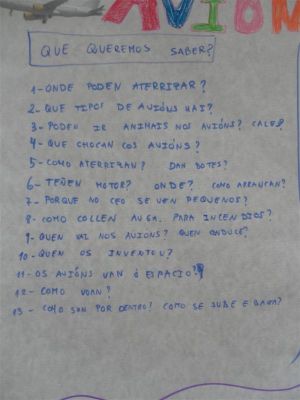 AVIÓN
QUE QUEREMOS SABER?
1-ONDE PODEN ATERRIZAR?
2-QUE TIPOS DE AVIÓNS HAI?
3-PODEN IR ANIMAIS NOS AVIÓNS? CALES?
4-QUE CHOCAN COS AVIÓNS?
5-COMO ATERRIZAN? DAN BOTES?
6-TEÑEN MOTOR? ONDE? COMO ARRANCAN?
7-PORQUE NO CEO SE VEN PEQUENOS?
8-COMO COLLEN AUGA PARA INCENDIOS?
9-QUEN VAI NOS AVIONS? QUEN CONDUCE?
10-QUEN OS INVENTOU?
11-OS AVIÓNS VAN Ó ESPACIO?
12-COMO VOAN?
13-COMO SON POR DENTRO? COMO SE SUBE E BAIXA?